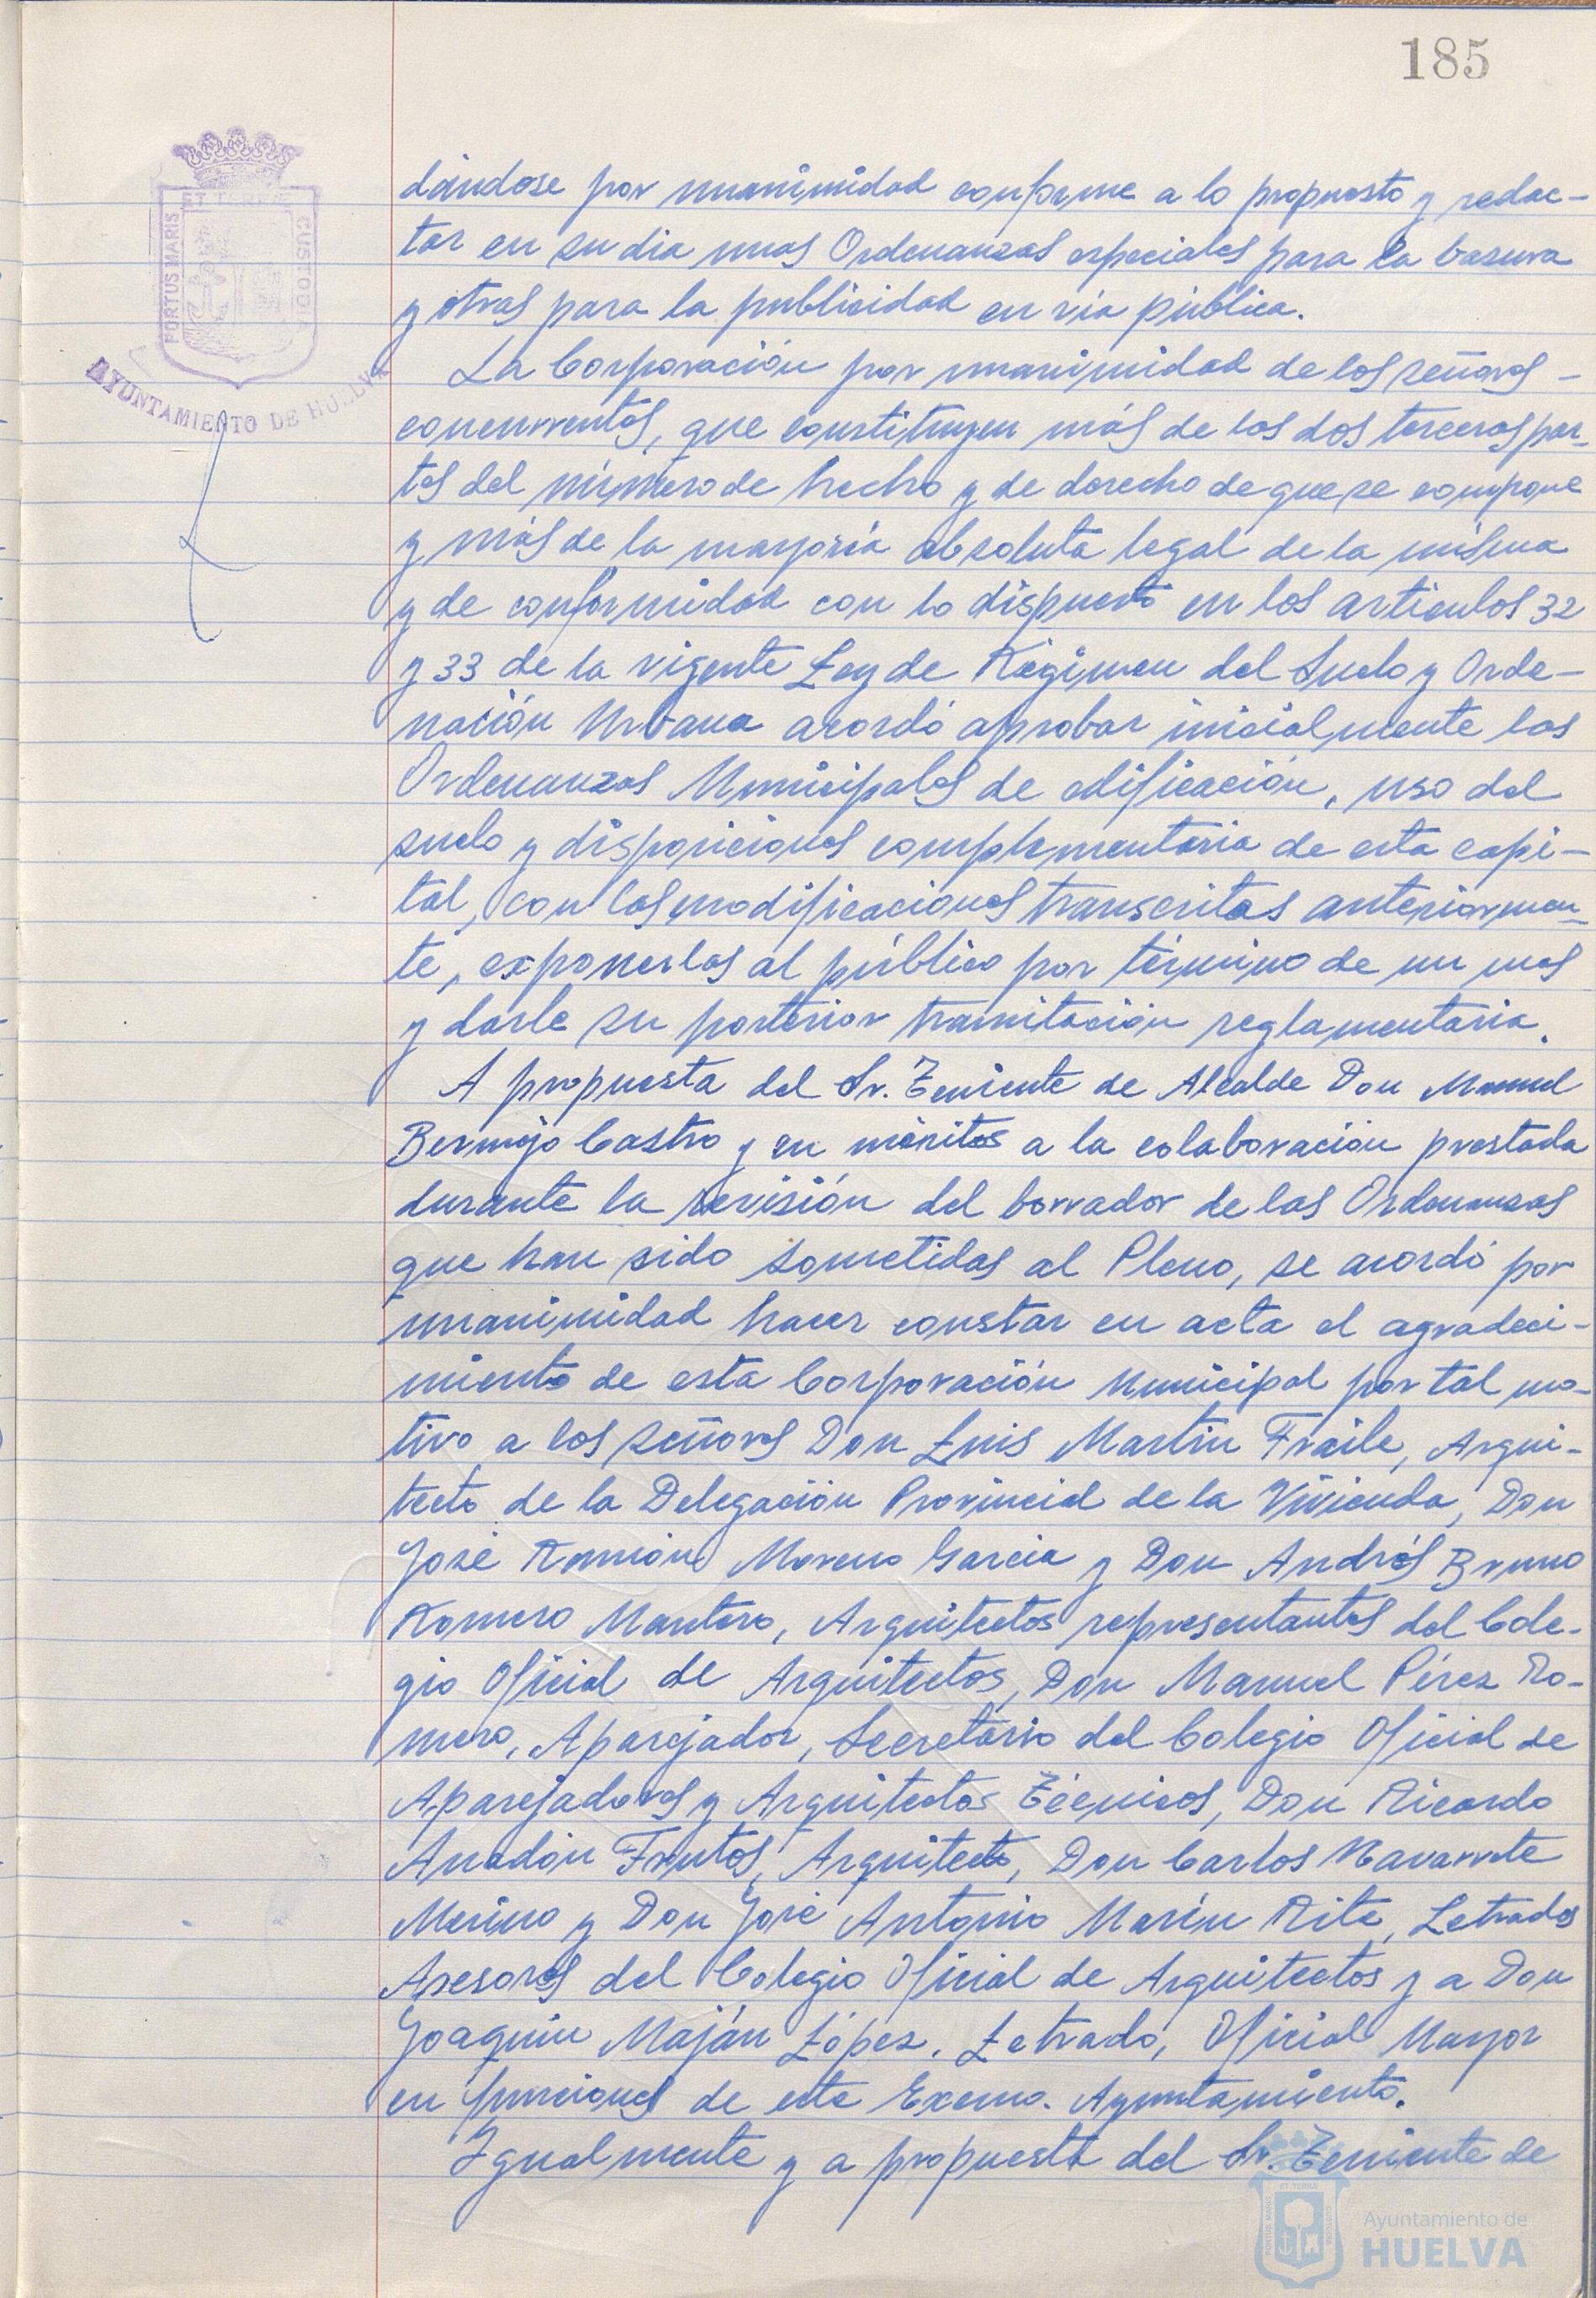 185
ET TERRÆ
PORTUS MARIS
CUSTODIA
AYUNTAMIENTO DE HUELVA
dándose por unanimidad conforme a lo propuesto y redac-
tar en su dia unas Ordenanzas especiales para la basura
y otras para la publicidad en via pública.
La Corporación por unanimidad de los señores -
concurrentes, que constituyen más de las dos terceras par-
tes del número de hecho y de derecho de que se compone
y más de la mayoría absoluta legal de la misma
y de conformidad con lo dispuesto en los articulos 32
y 33 de la vigente Ley de Régimen del Suelo y Orde-
nación Urbana acordó aprobar inicialmente las
Ordenanzas Municipales de edificación, uso del
suelo y disposiciones complementaria de esta capi-
tal, con las modificaciones transcritas anteriormen-
te, exponerlas al público por término de un mes
y darle su posterior tramitación reglamentaria.
A propuesta del Sr. Teniente de Alcalde Don Manuel
Bermejo Castro y en méritos a la colaboración prestada
durante la revisión del borrador de las Ordenanzas
que han sido sometidas al Pleno, se acordó por
unanimidad hacer constar en acta el agradeci-
miento de esta Corporación Municipal por tal mo-
tivo a los señores Don Luis Martin Fraile, Arqui-
tecto de la Delegación Provincial de la Vivienda, Don
José Ramón Moreno Garcia y Don Andrés Bruno
Romero Mantero, Arquitectos representantes del Cole-
gio Oficial de Arquitectos, Don Manuel Pérez Ro-
mero, Aparejador, Secretario del Colegio Oficial de
Aparejadores y Arquitectos Técnicos, Don Ricardo
Anadón Frutos, Arquitecto, Don Carlos Navarrete
Merino y Don José Antonio Marín Rite, Letrados
Asesores del Colegio Oficial de Arquitectos y a Don
Joaquin Maján López, Letrado, Oficial Mayor
en funciones de este Excmo. Ayuntamiento.
Igualmente y a propuesta del Sr. Teniente de
Ayuntamiento de
HUELVA